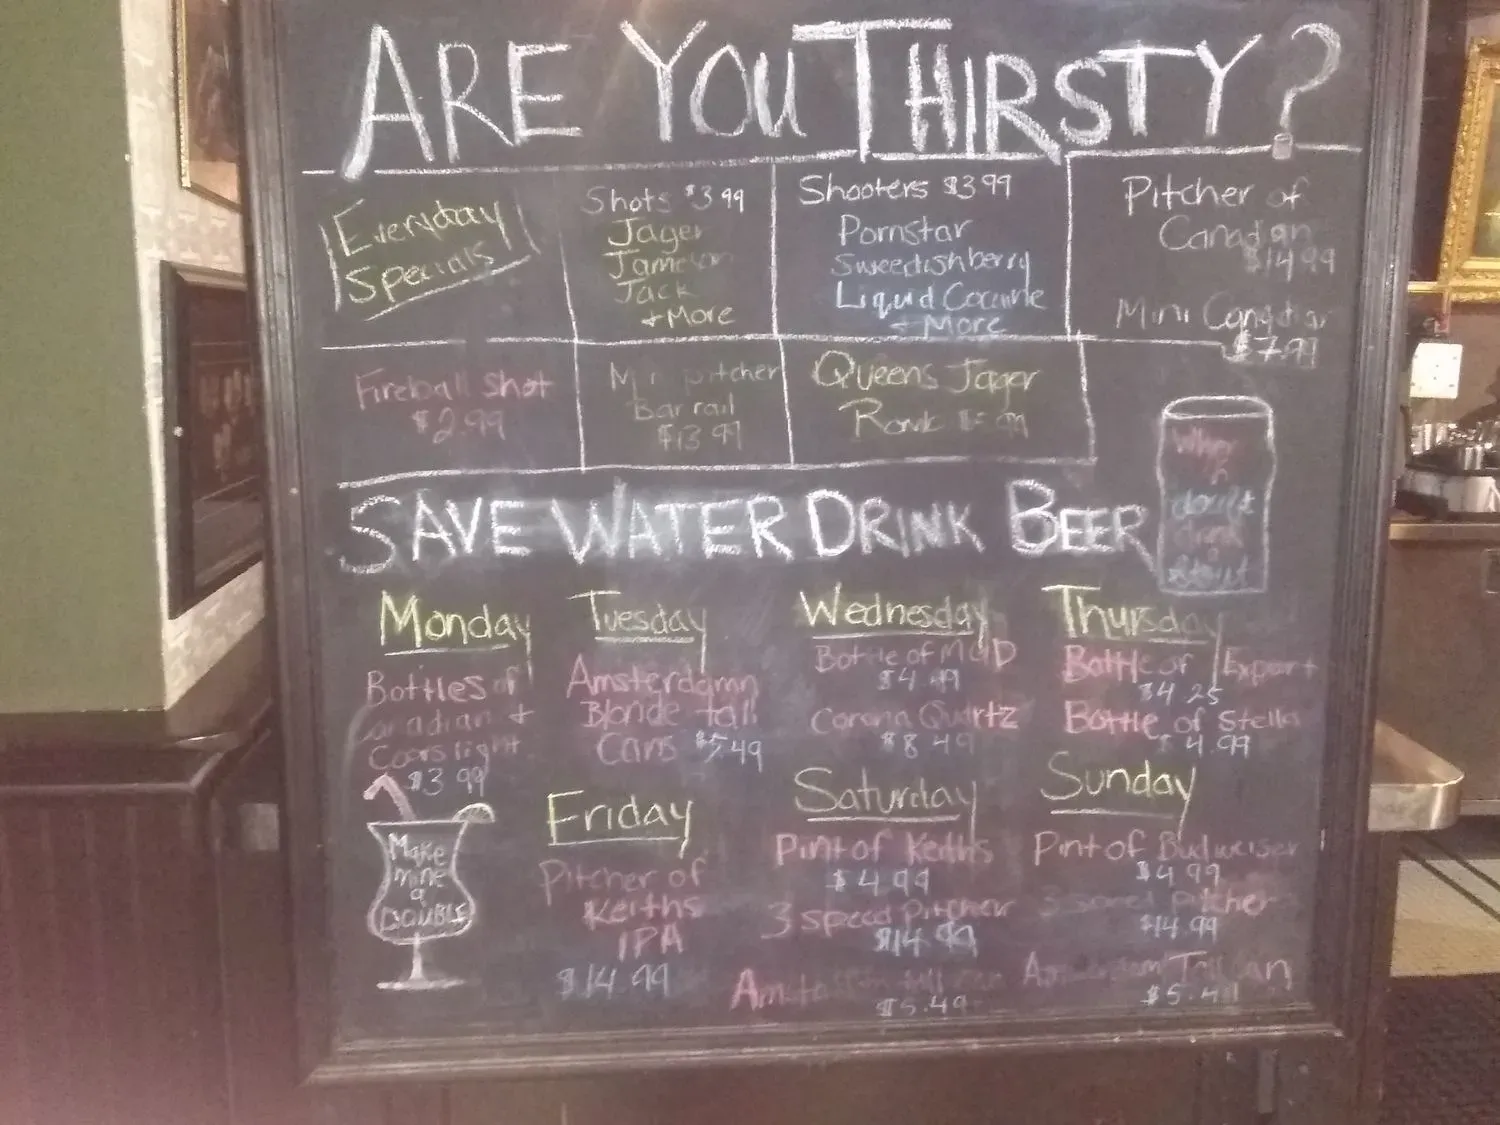 ARE YOU THIRSTY?
Everyday
Specials
Shots $3.99
Jager
Jameson
Jack
+ More
Shooters $3.99
Pornstar
Sweedishberry
Liquid Cocaine
+ More
Pitcher of
Canadian
$14.99
Mini Canadian
$7.99
Fireball Shot
$2.99
Mini pitcher
Bar rail
$13.99
Queens Jager
99
SAVE WATER DRINK BEER
When
in
doubt
drink
a
stout
Monday
Bottles of
Canadian +
Coors light
$3.99
Tuesday
Amsterdamn
Blonde tall
Cans $5.49
Wednesday
Bottle of
$4.99
Corona Quartz
$8.49
Thursday
Bottle of Export
$4.25
Bottle of Stella
$4.99
Make
mine
a
DOUBLE
Friday
Pitcher of
Keiths
IPA
$14.99
Saturday
Pint of Keiths
$4.99
3 speed pitcher
$14.99
$5.49
Sunday
Pint of Budweiser
$4.99
3 speed pitcher
$14.99
Amsterdam Tall can
$5.49